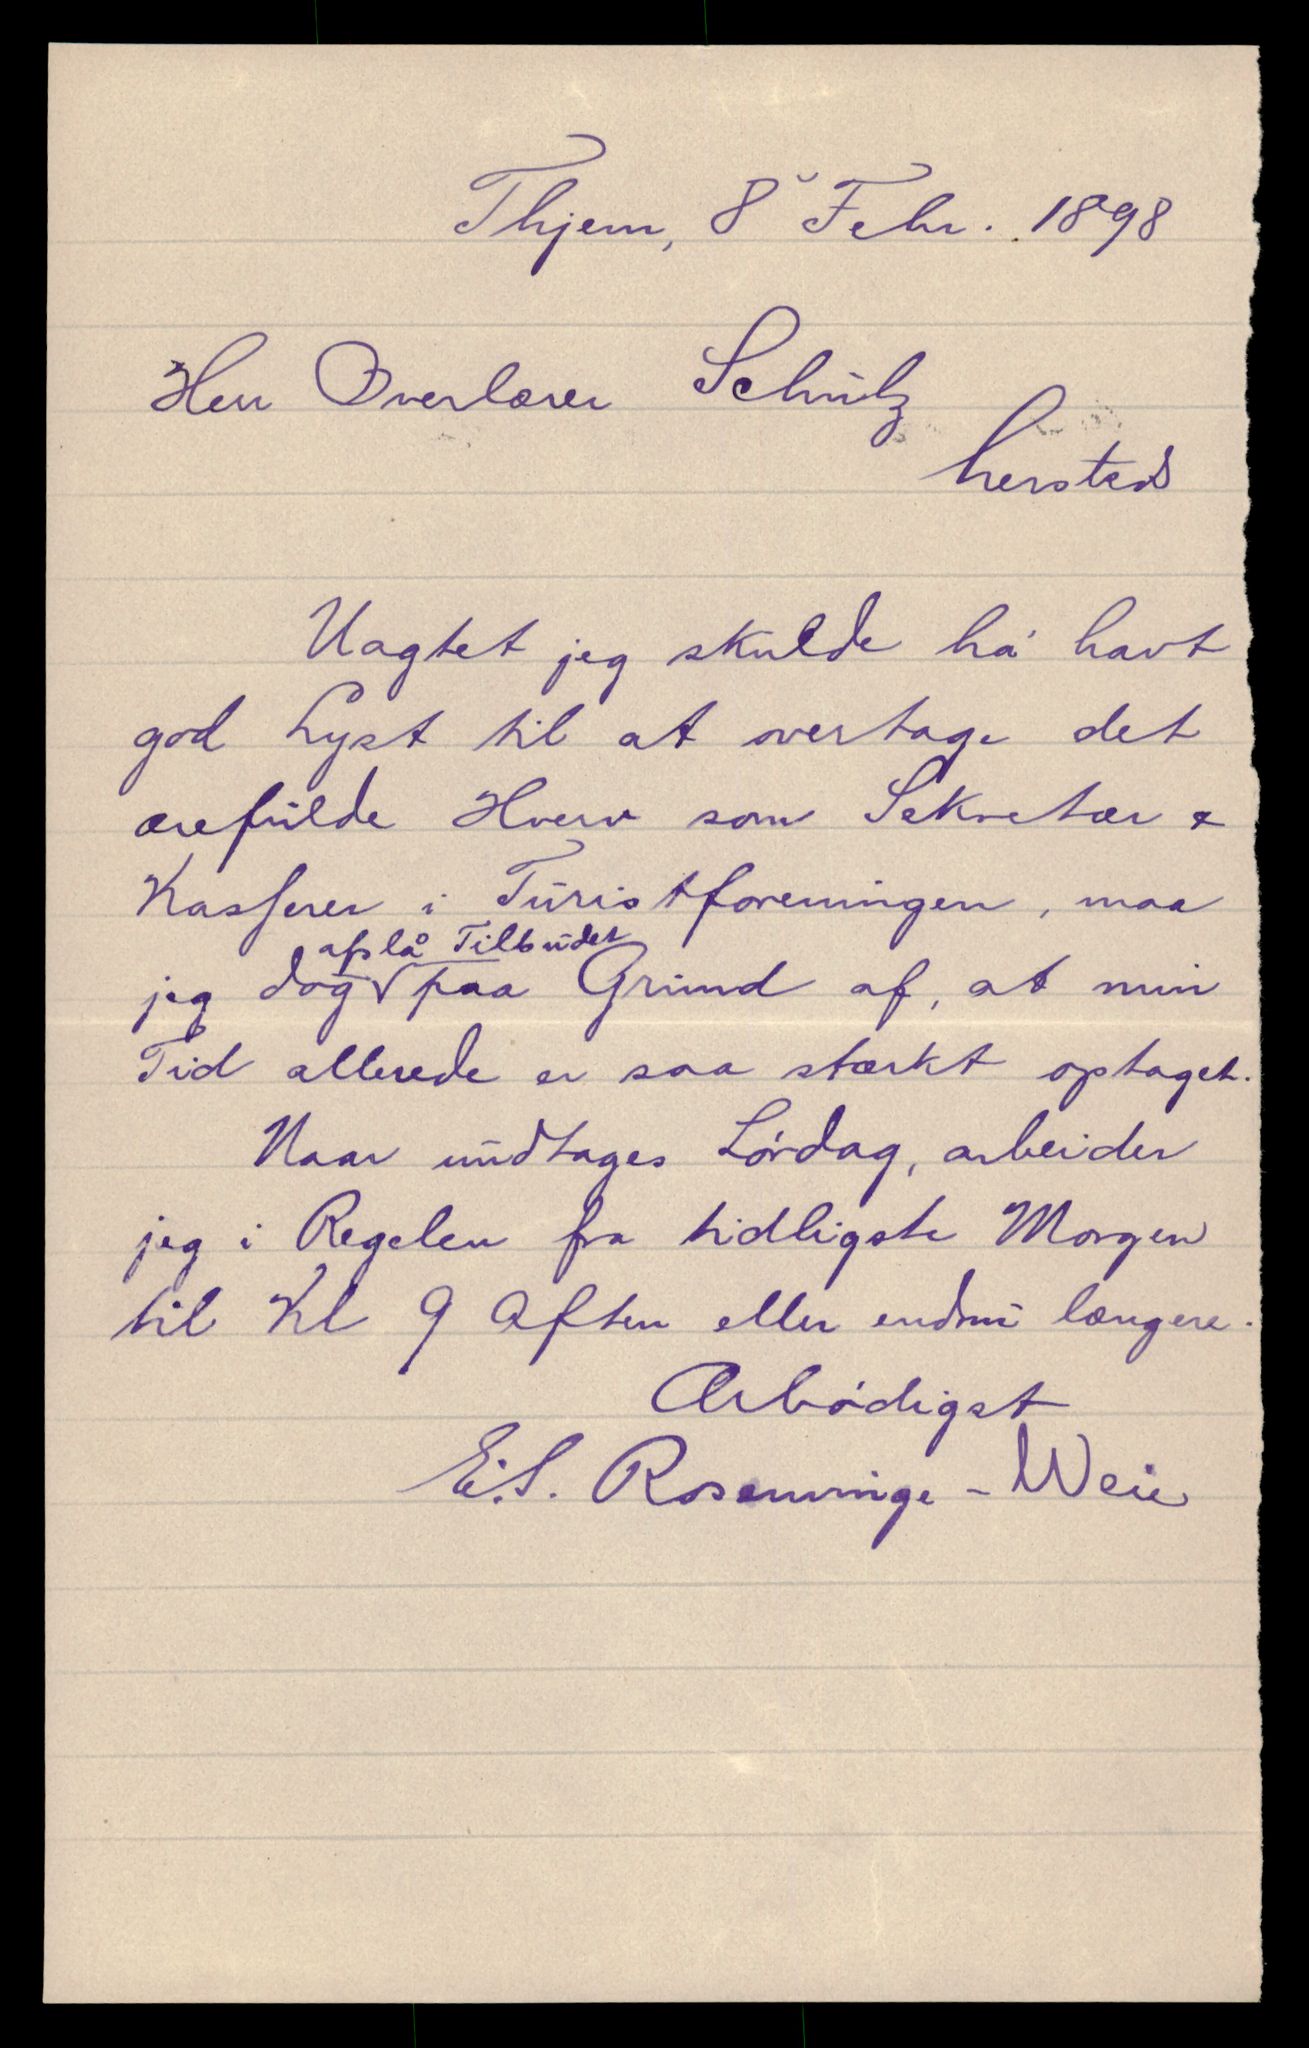 Thjem, 8 Febr. 1898
Herr Overlærer Schulz
hersteds
Uagtet jeg skulde há havt
god Lyst til at overtage det
ærefulde Hverv som Sekretær &
Kasserer i Turistforeningen, maa
afslå Tilbudet
jeg dog √ paa Grund af, at min
Tid allerede er saa stærkt optaget.
Naar undtages Lørdag, arbeider
jeg i Regelen fra tidligste Morgen
til Kl 9 Aften eller endnu længere.
Ærbødigst
E.S. Rosenvinge - Weie